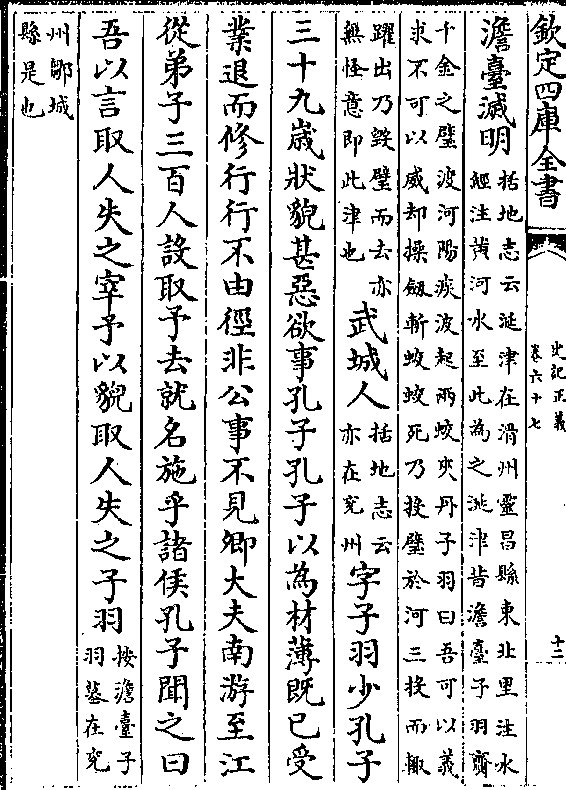 欽定四庫全書
史記正義
卷六十七
十三
澹臺滅明
括地志云延津在滑州靈昌縣東北里注水
經注黄河水至此為之延津昔澹臺子羽齎
千金之璧渡河陽侯波起兩蛟夾舟子羽曰吾可以義
求不可以威却操劔斬蛟蛟死乃投璧於河三投而輙
躍出乃毀璧而去亦
無怪意即此津也
武城人
括地志云
亦在兖州
字子羽少孔子
三十九歳狀貌甚惡欲事孔子孔子以為材薄既已受
業退而修行行不由徑非公事不見卿大夫南游至江
從弟子三百人設取予去就名施乎諸侯孔子聞之曰
吾以言取人失之宰予以貌取人失之子羽
按澹臺子
羽墓在兖
州鄒城
縣是也